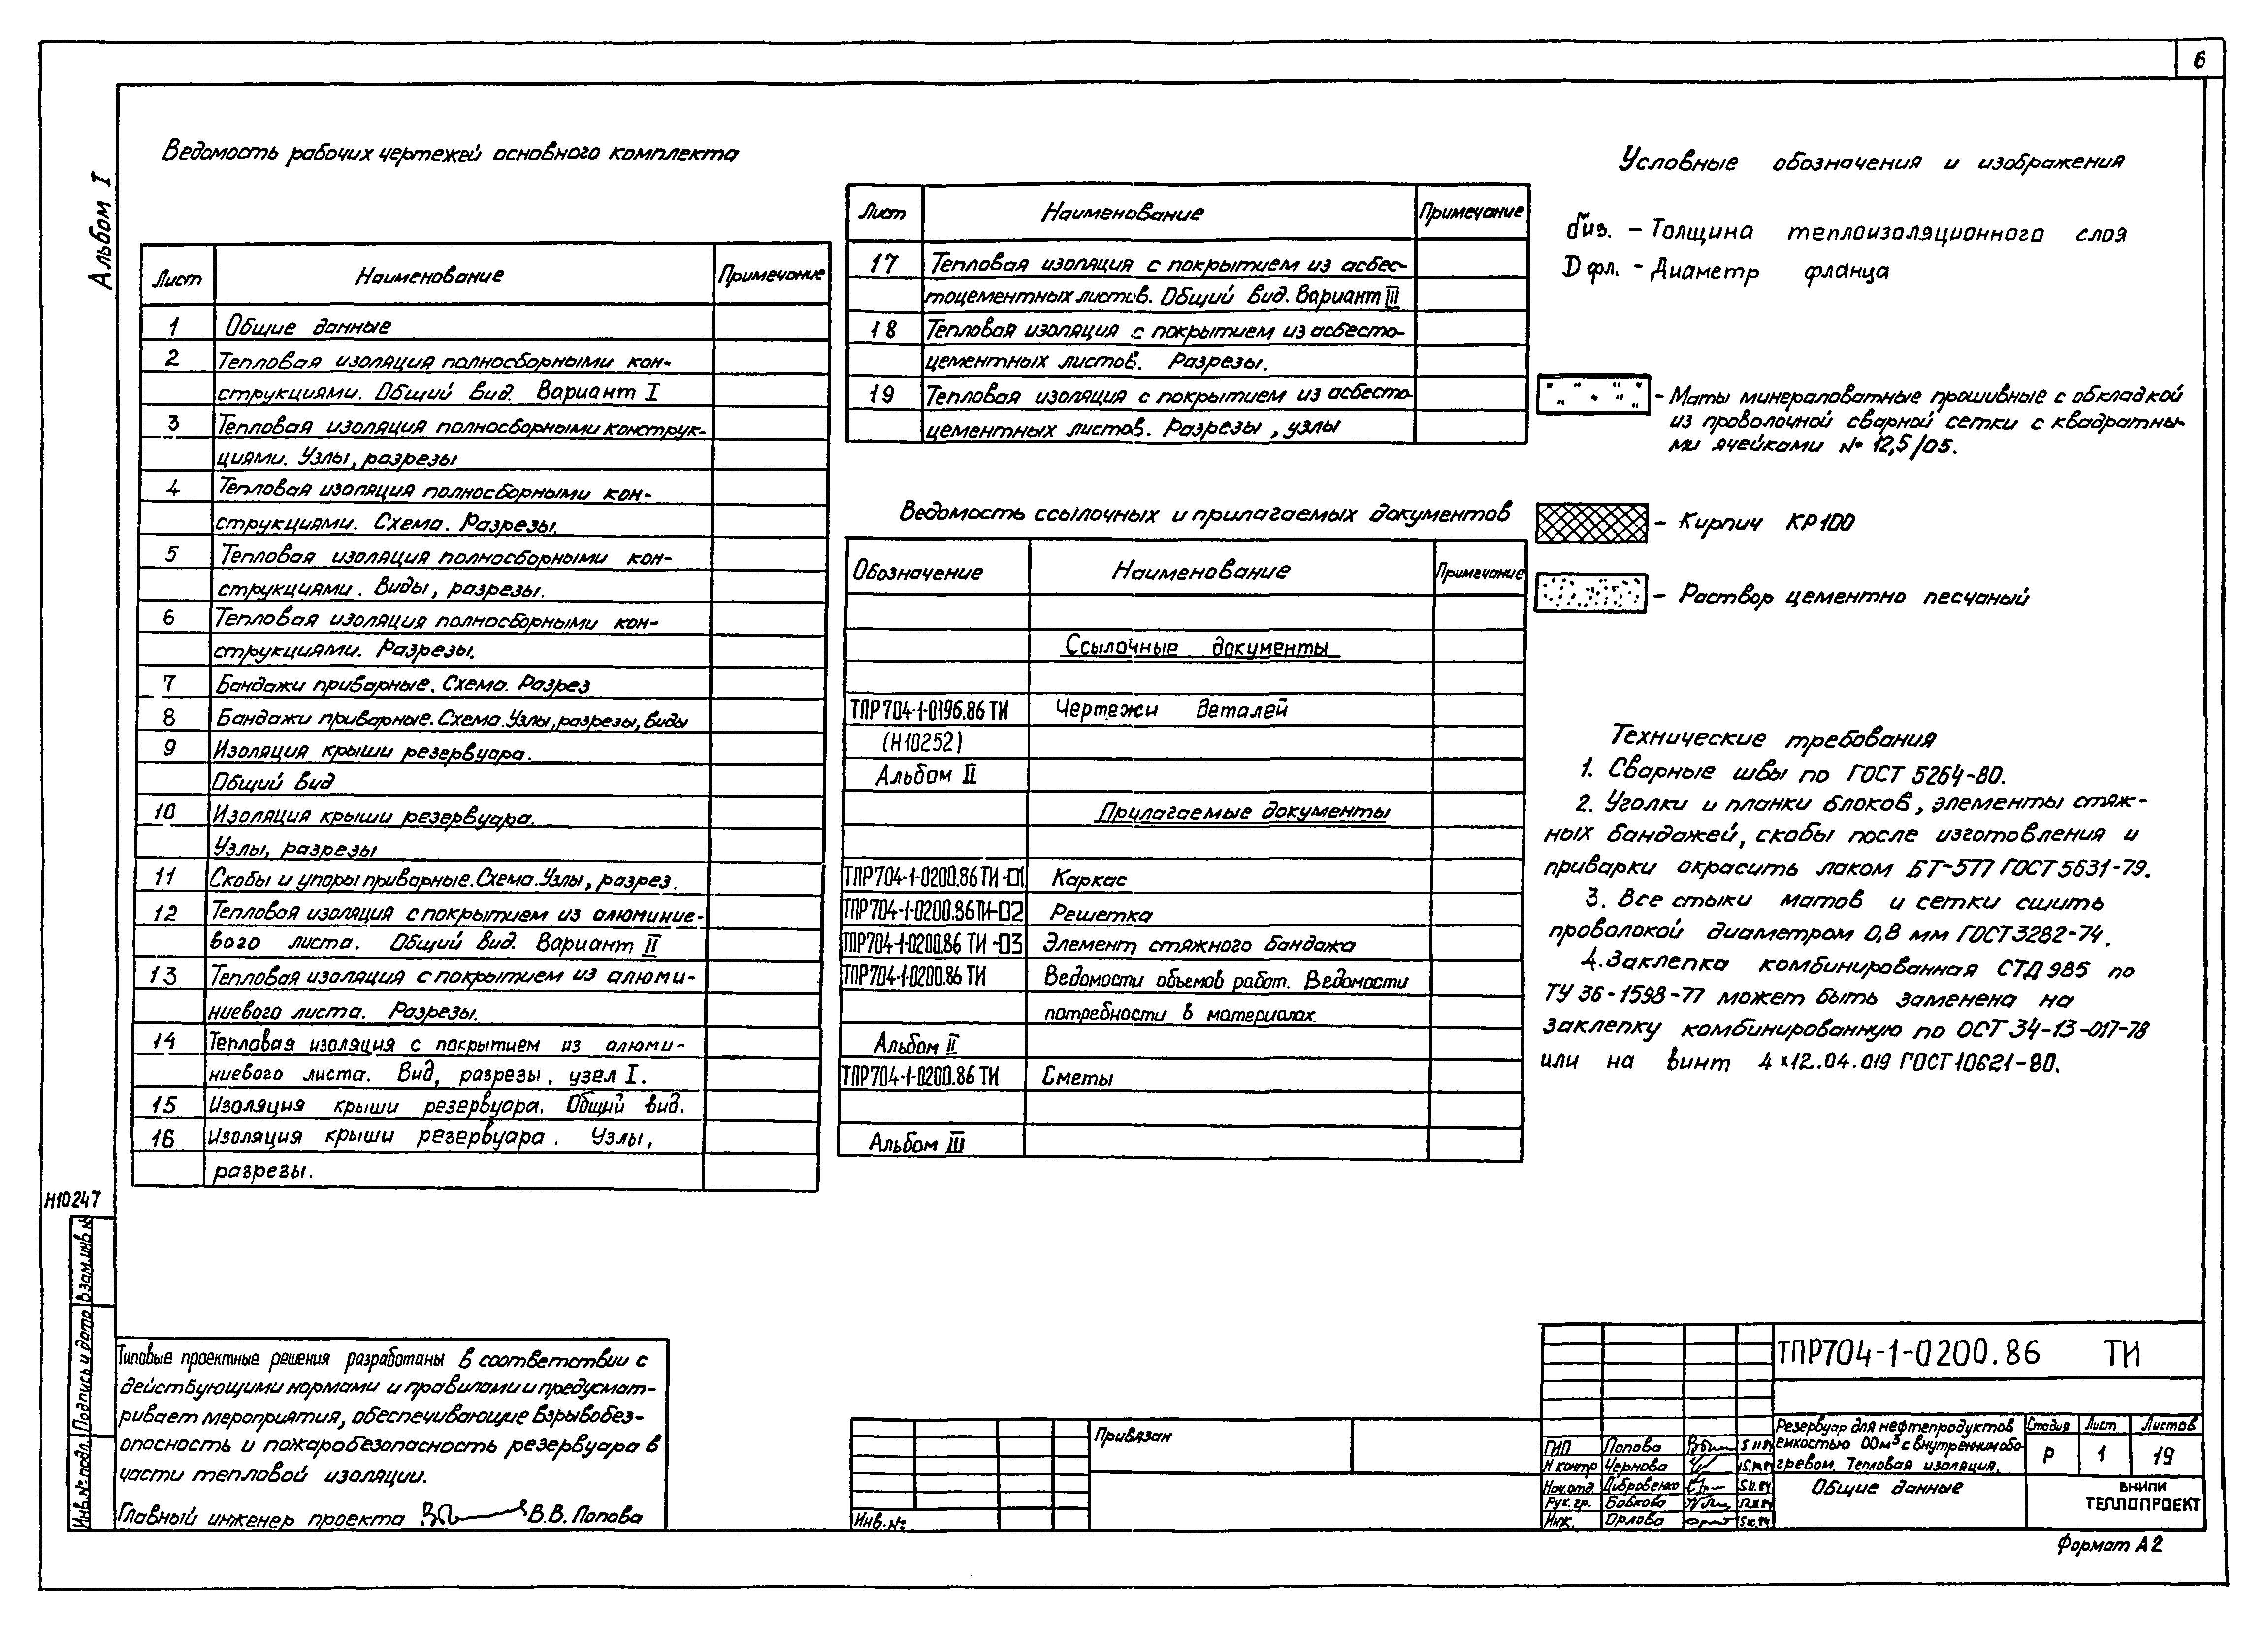 6
Альбом I
Ведомость рабочих чертежей основного комплекта
Лист Наименование Примечание
1 Общие данные
2 Тепловая изоляция полносборными кон-
струкциями. Общий вид. Вариант I
3 Тепловая изоляция полносборными конструк-
циями. Узлы, разрезы
4 Тепловая изоляция полносборными кон-
струкциями. Схема. Разрезы.
5 Тепловая изоляция полносборными кон-
струкциями. Виды, разрезы.
6 Тепловая изоляция полносборными кон-
струкциями. Разрезы.
7 Бандажи приварные. Схема. Разрез
8 Бандажи приварные. Схема. Узлы, разрезы, виды
9 Изоляция крыши резервуара.
Общий вид
10 Изоляция крыши резервуара.
Узлы, разрезы
11 Скобы и упоры приварные. Схема. Узлы, разрез.
12 Тепловая изоляция с покрытием из алюминие-
вого листа. Общий вид. Вариант II
13 Тепловая изоляция с покрытием из алюми-
ниевого листа. Разрезы.
14 Тепловая изоляция с покрытием из алюми-
ниевого листа. Вид, разрезы, узел I.
15 Изоляция крыши резервуара. Общий вид.
16 Изоляция крыши резервуара. Узлы,
разрезы.
Лист Наименование Примечание
17 Тепловая изоляция с покрытием из асбес-
тоцементных листов. Общий вид. Вариант III
18 Тепловая изоляция с покрытием из асбесто-
цементных листов. Разрезы.
19 Тепловая изоляция с покрытием из асбесто
цементных листов. Разрезы, узлы
Ведомость ссылочных и прилагаемых документов
Обозначение Наименование Примечание
Ссылочные документы
ТПР704-1-0196.86 ТИ Чертежи деталей
(Н10252)
Альбом II
Прилагаемые документы
ТПР704-1-0200.86 ТИ-01 Каркас
ТПР704-1-0200.86ТИ-02 Решетка
ТПР704-1-0200.86 ТИ-03 Элемент стяжного бандажа
ТПР704-1-0200.86 ТИ Ведомости объемов работ. Ведомости
потребности в материалах.
Альбом II
ТПР704-1-0200.86 ТИ Сметы
Альбом III
Условные обозначения и изображения
биз. - Толщина теплоизоляционного слоя
D фл. - Диаметр фланца
- Маты минераловатные прошивные с обкладкой
из проволочной сварной сетки с квадратны-
ми ячейками № 12,5/05.
- Кирпич КР100
- Раствор цементно песчаный
Технические требования
1. Сварные швы по ГОСТ 5264-80.
2. Уголки и планки блоков, элементы стяж-
ных бандажей, скобы после изготовления и
приварки окрасить лаком БТ-577 ГОСТ 5631-79.
3. Все стыки матов и сетки сшить
проволокой диаметром 0,8 мм ГОСТ 3282-74.
4. Заклепка комбинированная СТД 985 по
ТУ 36-1598-77 может быть заменена на
заклепку комбинированную по ОСТ 34-13-017-78
или на винт 4×12.04.019 ГОСТ 10621-80.
Н10247
Взам.инв.№
Подпись и дата
Инв.№ подл.
Типовые проектные решения разработаны в соответствии с
действующими нормами и правилами и предусмат-
ривает мероприятия, обеспечивающие взрывобез-
опасность и пожаробезопасность резервуара в
части тепловой изоляции.
Главный инженер проекта В.В. Попова
Привязан
Инв.№
ТПР704-1-0200.86 ТИ
Резервуар для нефтепродуктов
емкостью 00м³ с внутренним обо-
гревом. Тепловая изоляция.
Стадия Лист Листов
Р 1 19
ГИП Попова
Н контр Чернова
Нач.отд. Дибровенко
Рук.гр. Бобкова
Инж. Орлова
Общие данные
ВНИПИ
ТЕПЛОПРОЕКТ
Формат А2